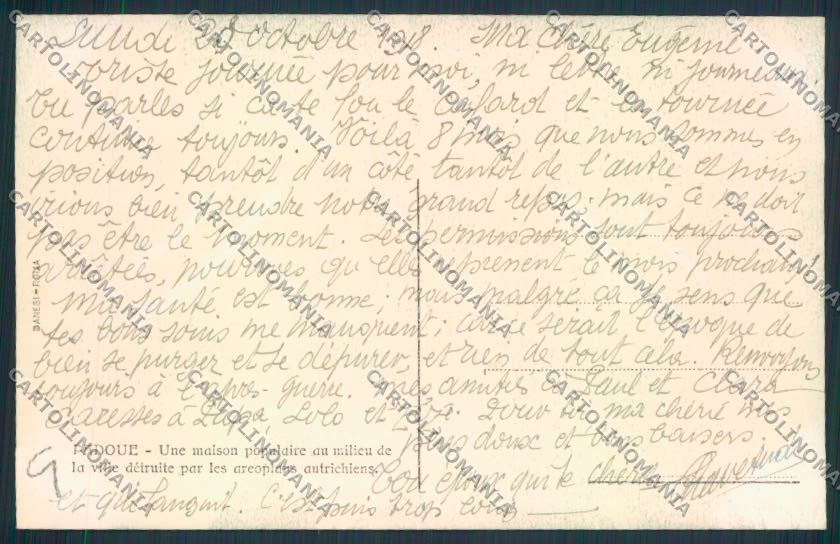 Lundi 28 Octobre 1918. Ma chère Eugénie
Triste journée pour moi, ni lettre ni journeaux.
Tu parles si cette fou le cafard et la tournée
continue toujours. Voilà 8 mois que nous sommes en
position, tantôt d'un côté tantot de l'autre et nous
irions bien prendre notre grand repos; mais ce ne doit
pas être le moment. Les permissions sont toujours
arrêtées, pourvues qu'elles reprenent le mois prochain!
Ma santé est bonne; mais malgré ça je sens que
tes bons soins me manquent; car ce serait l'époque de
bien se purger et se dépurer, et rien de tout cela. Renvoyons
toujours à l'après-guerre. Mes amitiés à Paul et Claire
caresses à Lolo et ma chérie mes
plus doux et bons baisers.
PADOUE - Une maison populaire au milieu de
la ville détruite par les areoplans autrichiens.
Ton époux qui te chérit
et que languit. C'est puis trop long
DANESI - ROMA
CARTOLINOMANIA